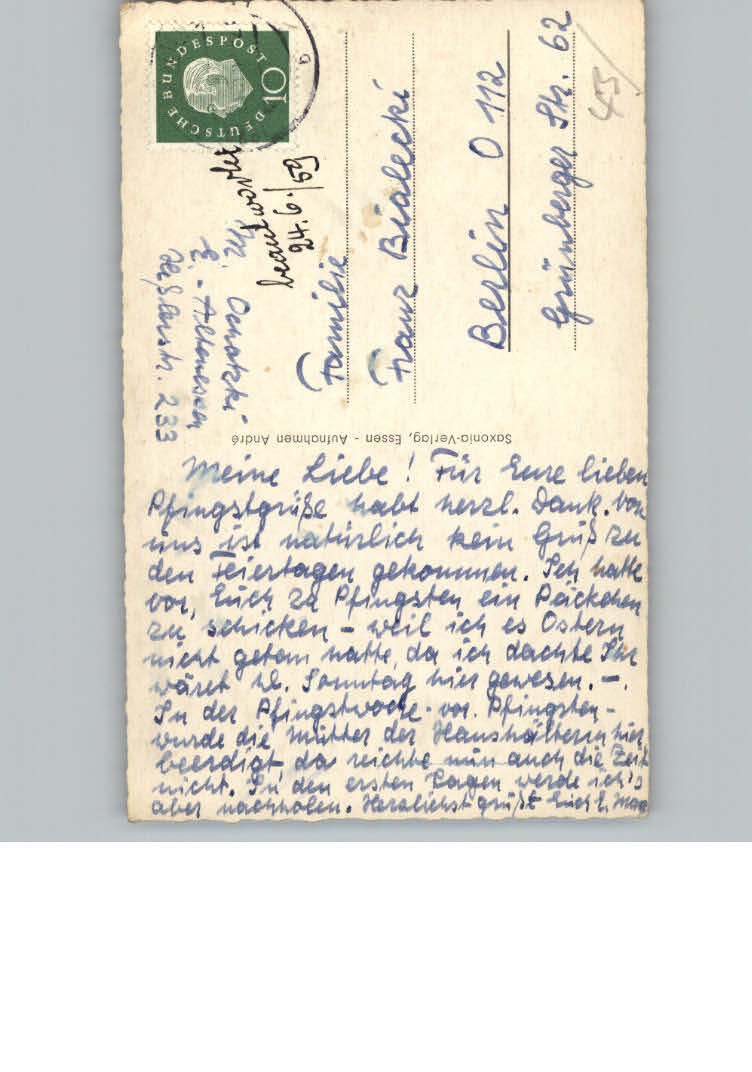 DEUTSCHE BUNDESPOST
10
beantwortet
24.6./59
M.
E.-Altenessen
str. 233
Familie
Franz Bialecki
Berlin O 112
Grünberger Str. 62
45
Saxonia-Verlag, Essen - Aufnahmen André
Meine Liebe! Für Eure lieben
Pfingstgrüße habt herzl. Dank. Von
uns ist natürlich kein Gruß zu
den Feiertagen gekommen. Ich hatte
vor, Euch zu Pfingsten ein Päckchen
zu schicken - weil ich es Ostern
nicht getan hatte, da ich dachte Ihr
wäret Sonntag hier gewesen. -.
In der Pfingstwoche - vor Pfingsten -
wurde die Mutter der Haushälterin hier
beerdigt da reichte nun auch die Zeit
nicht. In den ersten Tagen werde ich's
aber nachholen. Herzlichst grüßt Euch